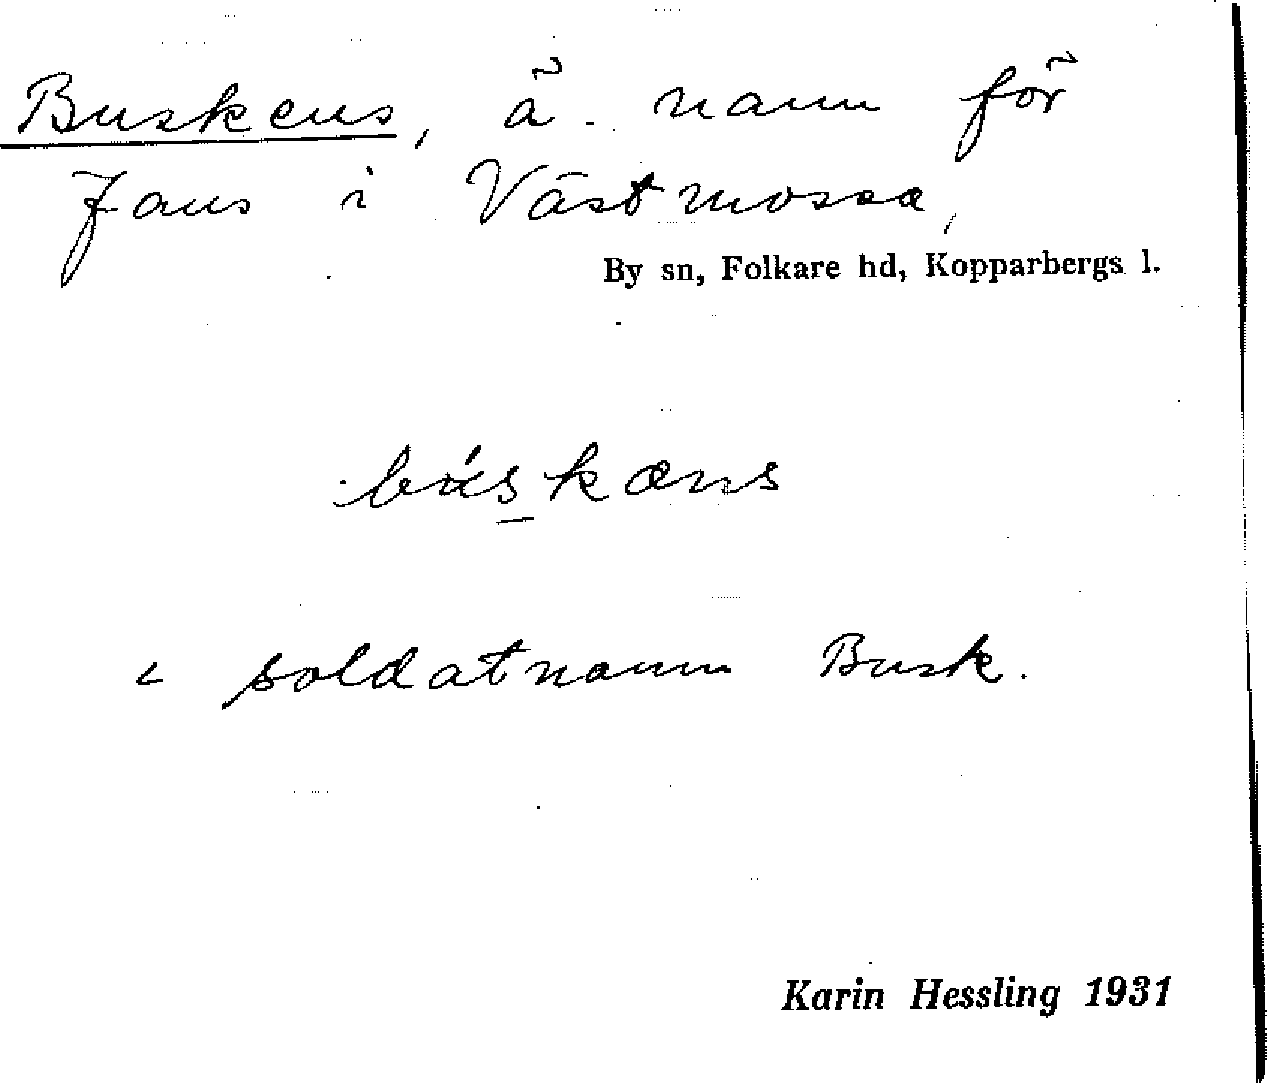 Buskens, ä. namn för
Jans i Västmossa,
By sn, Folkare hd, Kopparbergs l.
búskæns
< soldatnamn Busk.
Karin Hessling 1931